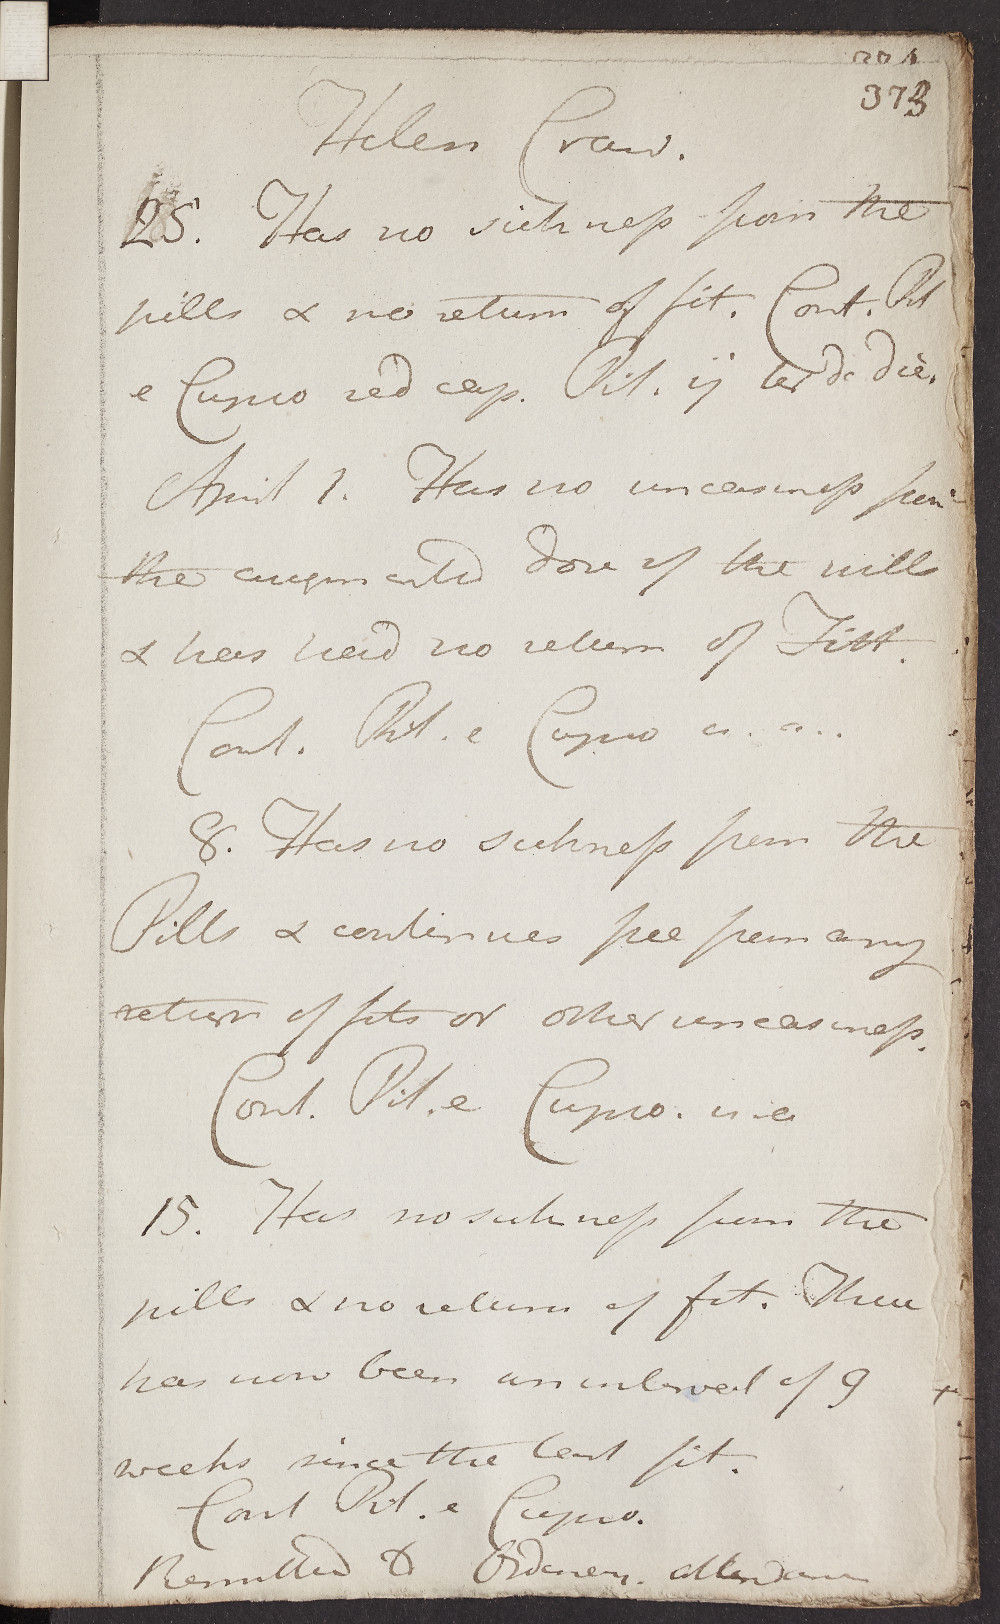 373
Helen Craw.
25. Has no sickness from the
pills & no return of fit. Cont. Pil
e Cupro red cap. Pil. ij ter de die.
April 1. Has no uneasiness from
the augmented dose of the pills
& has had no return of Fitt.
Cont. Pil. e Cupro u. a..
8. Has no sickness from the
Pills & continues free from any
return of fits or other uneasiness.
Cont. Pil. e Cupro. u. a
15. Has no sickness from the
pills & no return of fit. There
has now been an interval of 9
weeks since the last fit.
Cont Pil. e Cupro.
Remitted to Ordinary. attendance